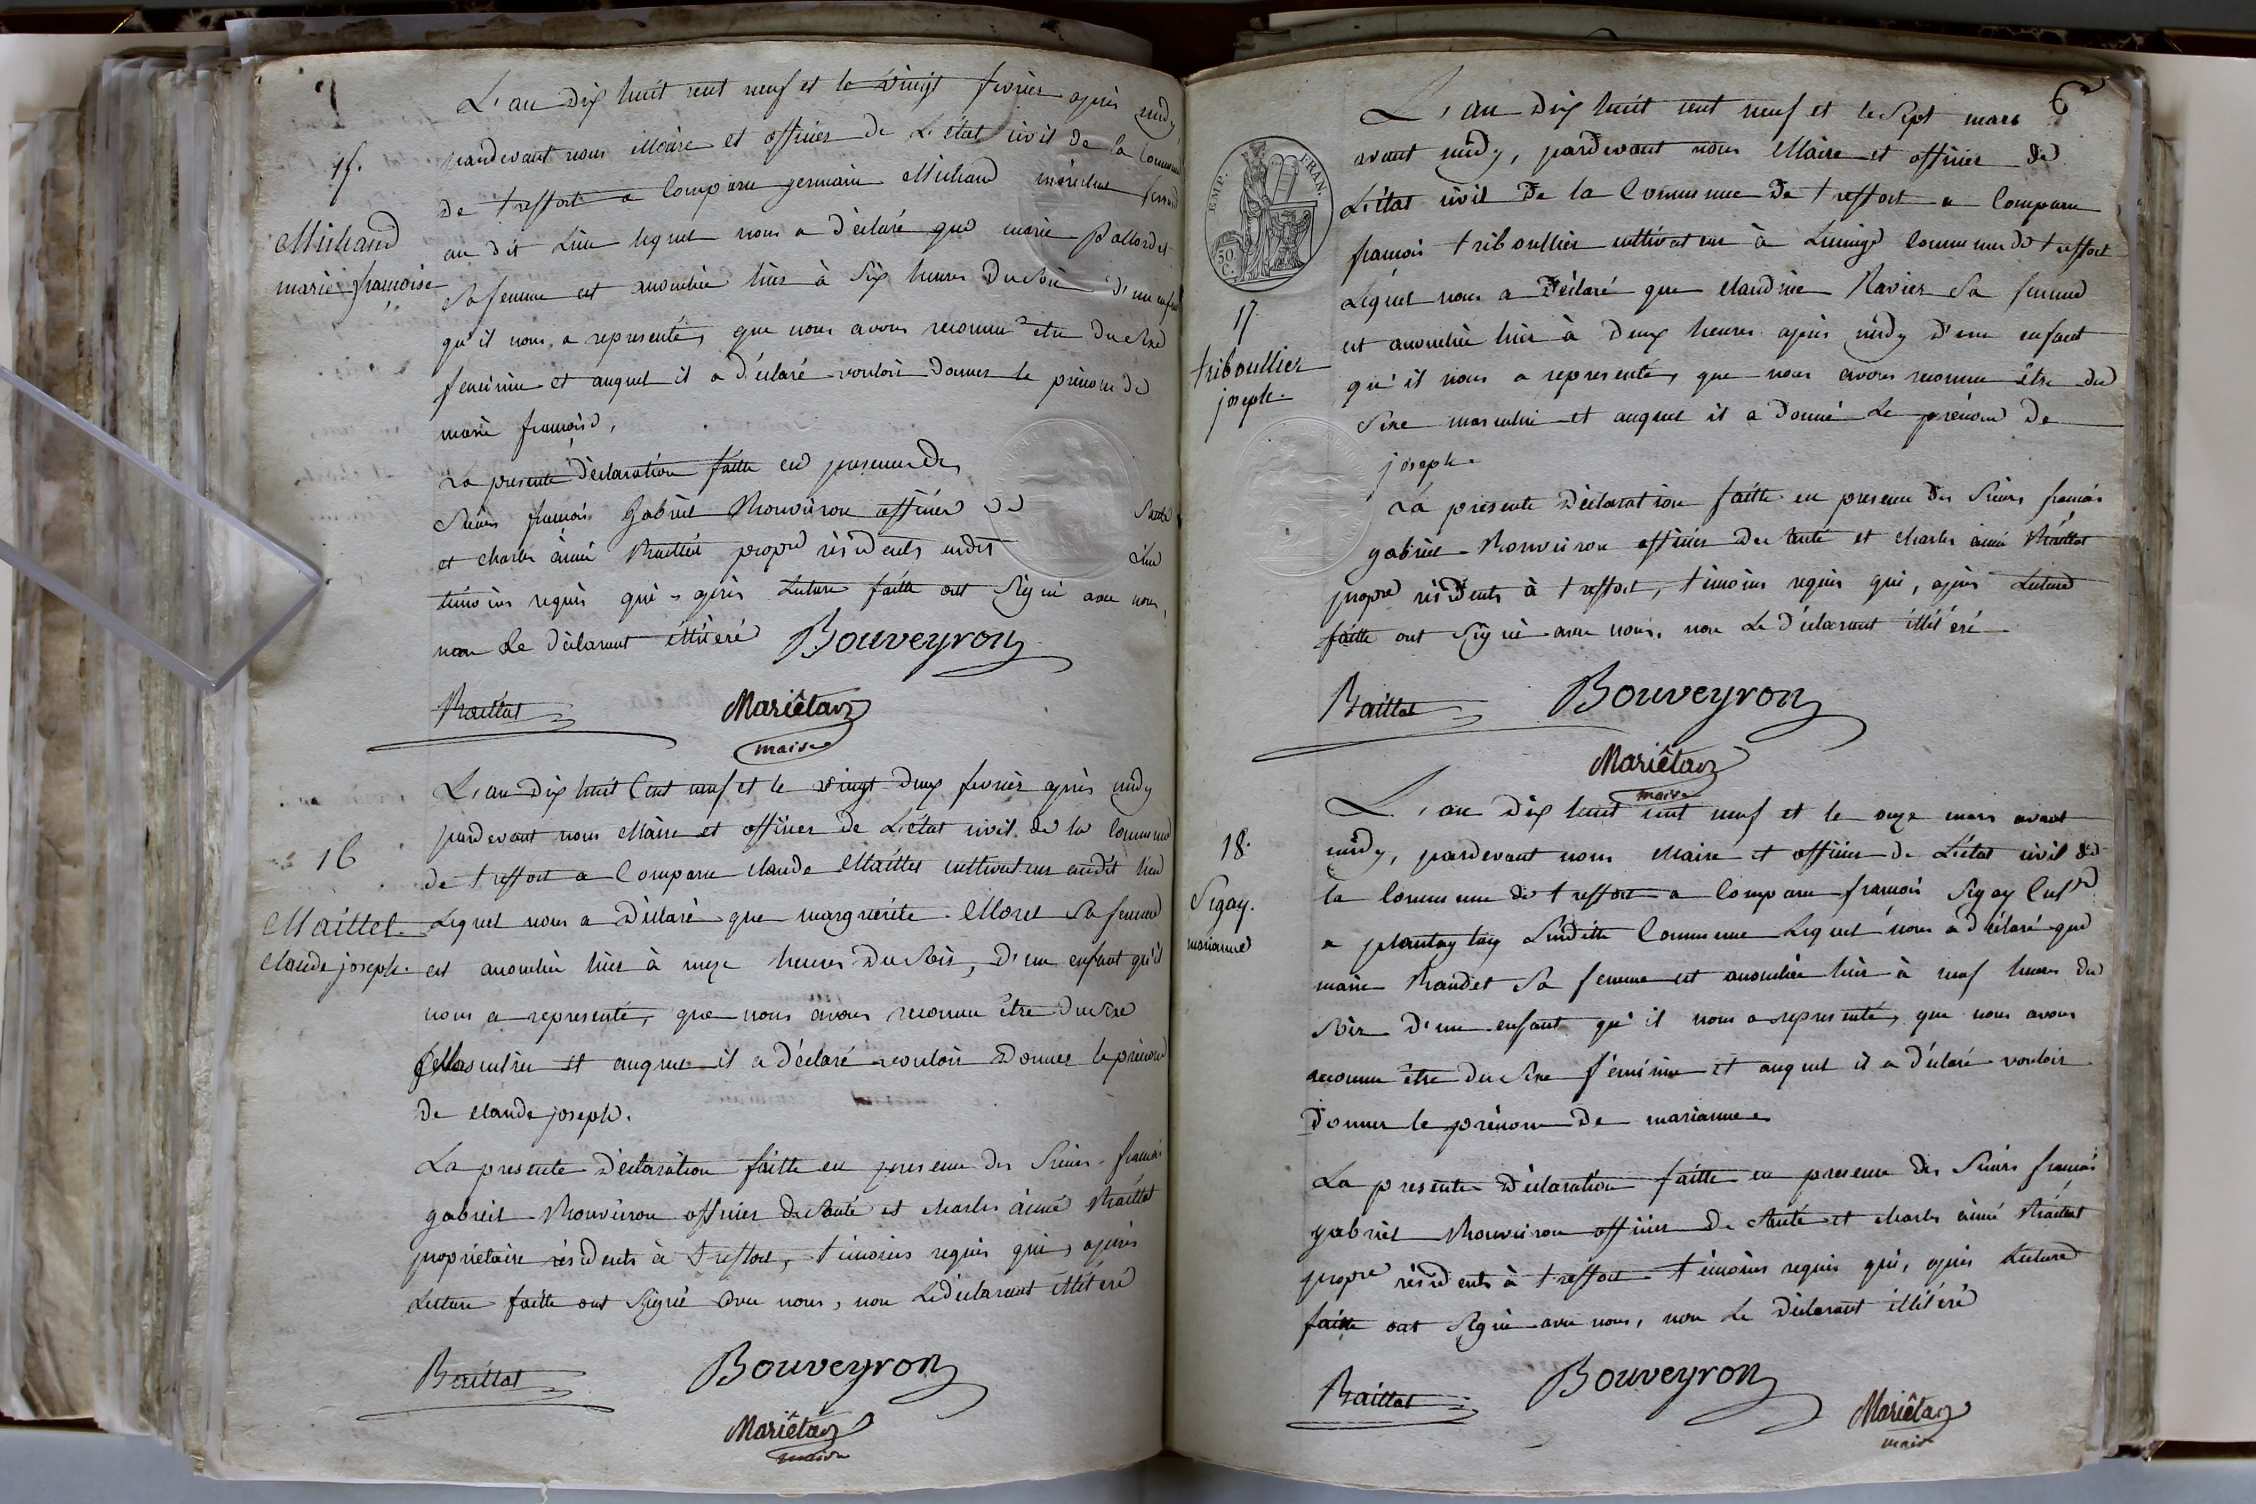 15.
Michaud
marie françoise
L'an dix huit cent neuf et le vingt fevrier après midy
pardevant nous Maire et officier de L'état civil de la Commune
de treffort a Comparu germain Michaud marechal ferrand
au dit Lieu lequel nous a déclaré que marie
Sa femme est accouchée hier à Six heures Du Soir D'un enfant
qu'il nous a representé, que nous avons reconnu être Du Sexe
feminin et auquel il a déclaré vouloir donner le prénom de
marie françoise,
La presente Déclaration faitte en presence Des
Sieurs françois Gabriel Bouveiron officier De Santé
et charles aimé Raillat propre résidents audit Lieu
témoins requis qui après Lecture faitte ont Signé avec nous,
non Le Déclarant illiteré Bouveyron
Raillat Mariêtan
maire
16
Maillet
Claude joseph.
L'an dix huit Cent neuf et le vingt Deux fevrier après midy
pardevant nous Maire et officier de L'état civil de la Commune
de treffort a Comparu claude Maillet cultivateur audit lieu
Lequel nous a Déclaré que marguerite Morel Sa femme
est accouchée hier à onze heures Du Soir, D'un enfant qu'il
nous a representé, que nous avons reconnu être Du Sexe
Masculin et auquel il a Déclaré vouloir Donner le prénom
De claude joseph.
La presente Déclaration faitte en presence Des Sieurs françois
gabriel Bouveiron officier De Santé et charles aimé Raillat
propriétaire résidents à treffort, témoins requis qui, après
Lecture faitte ont Signé avec nous, non Le Déclarant illiteré
Raillat Bouveyron
Mariêtan
maire
6
EMP. FRAN.
50 C.
17
triboullier
joseph.
L'an Dix huit cent neuf et le Sept mars
avant midy, pardevant nous Maire et officier de
L'état civil De la Commune De treffort a Comparu
françois triboullier cultivateur à Lucinge Commune de treffort
Lequel nous a Déclaré que claudine Ravier Sa femme
est accouchée hier à Deux heures après midy D'un enfant
qu'il nous a representé, que nous avons reconnu être du
Sexe masculin et auquel il a Donné Le prénom De
joseph.
La presente Déclaration faitte en presence Des Sieurs françois
gabriel Bouveiron officier De Santé et charles aimé Raillat
propre résidents à treffort, témoins requis qui, après Lecture
faitte ont Signé avec nous, non Le Déclarant illiteré
Raillat Bouveyron
Mariêtan
maire
18.
Sigay.
marianne
L'an Dix huit cent neuf et le onze mars avant
midy, pardevant nous Maire et officier de L'état civil de
la Commune de treffort a Comparu françois Sigay
a plantaglay Susditte Commune Lequel nous a déclaré que
marie Sa femme est accouchée hier à neuf heures du
Soir D'un enfant qu'il nous a representé, que nous avons
reconnu être du Sexe féminin et auquel il a déclaré vouloir
Donner le prénom De marianne
La presente Déclaration faitte en presence des Sieurs françois
gabriel Bouveiron officier De Santé et charles aimé Raillat
propre résidents à treffort témoins requis qui, après Lecture
faitte ont Signé avec nous, non Le Déclarant illiteré
Raillat Bouveyron
Mariêtan
maire